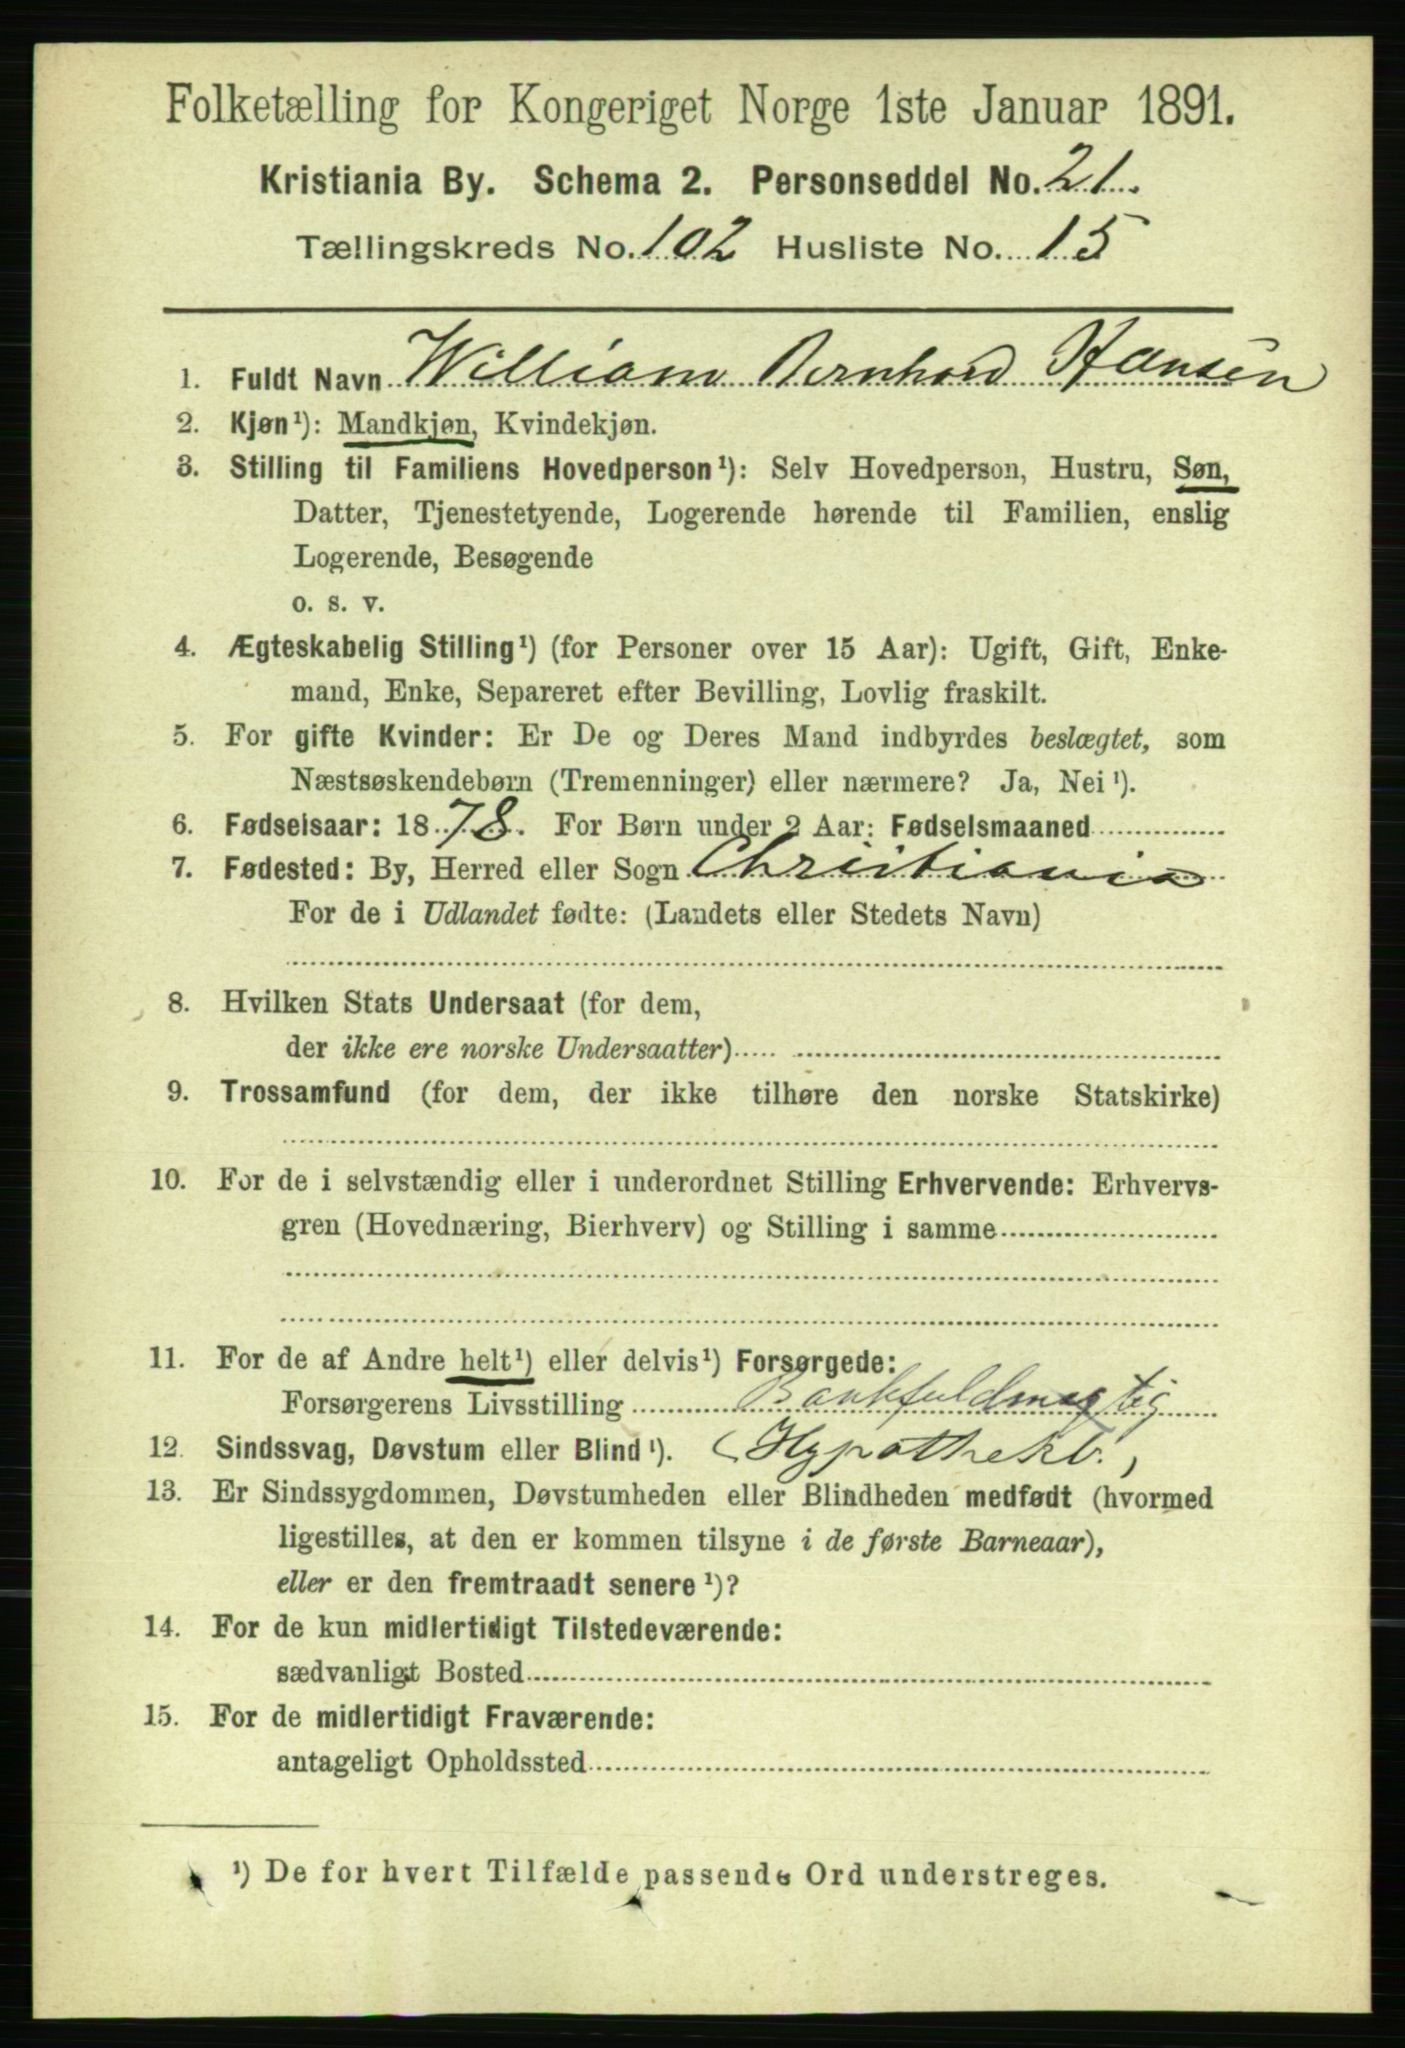 Folketælling for Kongeriget Norge 1ste Januar 1891.
Kristiania By. Schema 2. Personseddel No. 21.
Tællingskreds No. 102 Husliste No. 15
1. Fuldt Navn William Bernhard Hansen
2. Kjøn¹): Mandkjøn, Kvindekjøn.
3. Stilling til Familiens Hovedperson¹): Selv Hovedperson, Hustru, Søn,
Datter, Tjenestetyende, Logerende hørende til Familien, enslig
Logerende, Besøgende
o. s. v.
4. Ægteskabelig Stilling¹) (for Personer over 15 Aar): Ugift, Gift, Enke-
mand, Enke, Separeret efter Bevilling, Lovlig fraskilt.
5. For gifte Kvinder: Er De og Deres Mand indbyrdes beslægtet, som
Næstsøskendebørn (Tremenninger) eller nærmere? Ja, Nei¹).
6. Fødselsaar: 1878. For Børn under 2 Aar: Fødselsmaaned
7. Fødested: By, Herred eller Sogn Christiania
For de i Udlandet fødte: (Landets eller Stedets Navn)
8. Hvilken Stats Undersaat (for dem,
der ikke ere norske Undersaatter)
9. Trossamfund (for dem, der ikke tilhøre den norske Statskirke)
10. For de i selvstændig eller i underordnet Stilling Erhvervende: Erhvervs-
gren (Hovednæring, Bierhverv) og Stilling i samme
11. For de af Andre helt¹) eller delvis¹) Forsørgede:
Forsørgerens Livsstilling Bankfuldmægtig
12. Sindssvag, Døvstum eller Blind¹). (Hypothekb.)
13. Er Sindssygdommen, Døvstumheden eller Blindheden medfødt (hvormed
ligestilles, at den er kommen tilsyne i de første Barneaar),
eller er den fremtraadt senere¹)?
14. For de kun midlertidigt Tilstedeværende:
sædvanligt Bosted
15. For de midlertidigt Fraværende:
antageligt Opholdssted
¹) De for hvert Tilfælde passende Ord understreges.